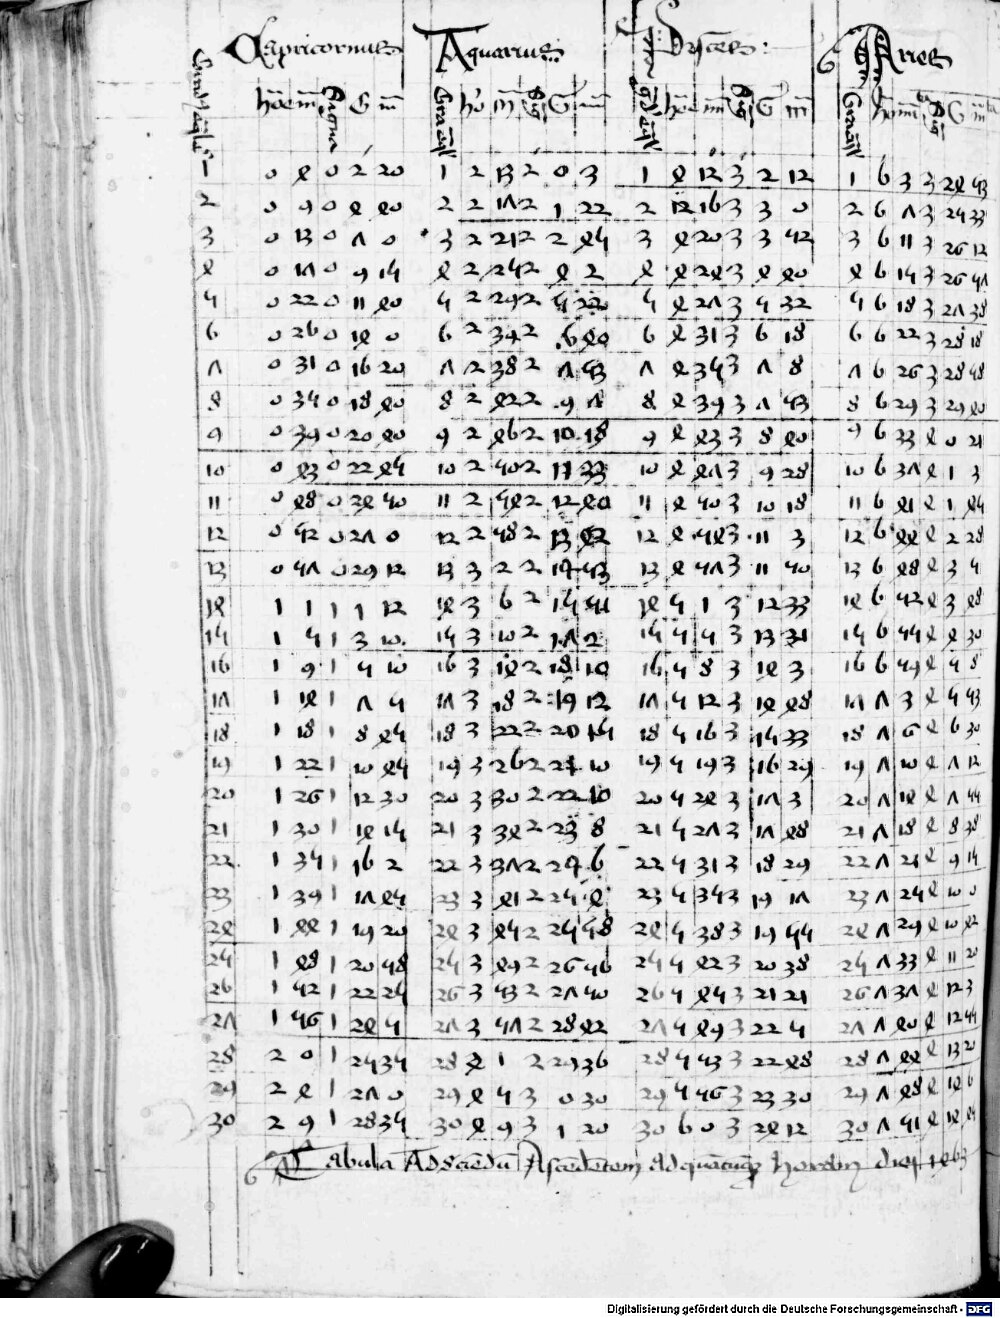 Capricornus Aquarius Pisces Aries
1 0 4 0 2 20 1 2 13 2 0 3 1 4 12 3 2 12 1 6 3 3 24 53
2 0 9 0 4 40 2 2 17 2 1 22 2 16 3 3 0 2 6 7 3 25 33
3 0 13 0 7 0 3 2 21 2 2 45 3 4 20 3 3 52 3 6 11 3 26 12
4 0 17 0 9 15 4 2 25 2 4 2 4 4 24 3 4 40 4 6 15 3 26 57
5 0 22 0 11 40 5 2 29 2 5 20 5 4 27 3 5 32 5 6 18 3 27 38
6 0 26 0 14 0 6 2 34 2 6 40 6 4 31 3 6 18 6 6 22 3 28 18
7 0 31 0 16 20 7 2 38 2 7 53 7 4 35 3 7 8 7 6 26 3 28 58
8 0 35 0 18 40 8 2 42 2 9 7 8 4 39 3 7 53 8 6 29 3 29 40
9 0 39 0 20 40 9 2 46 2 10 18 9 4 43 3 8 40 9 6 33 4 0 21
10 0 43 0 22 45 10 2 50 2 11 33 10 4 47 3 9 28 10 6 37 4 1 3
11 0 48 0 24 50 11 2 54 2 12 40 11 4 50 3 10 18 11 6 41 4 1 45
12 0 52 0 27 0 12 2 58 2 13 42 12 4 54 3 11 3 12 6 44 4 2 28
13 0 57 0 29 12 13 3 2 2 14 53 13 4 57 3 11 50 13 6 48 4 3 5
14 1 1 1 1 12 14 3 6 2 15 51 14 5 1 3 12 33 14 6 52 4 3 48
15 1 5 1 3 10 15 3 10 2 17 2 15 5 5 3 13 21 15 6 55 4 4 30
16 1 9 1 5 10 16 3 14 2 18 10 16 5 8 3 14 3 16 6 59 4 5 8
17 1 14 1 7 5 17 3 18 2 19 12 17 5 12 3 14 48 17 7 3 4 5 53
18 1 18 1 8 45 18 3 22 2 20 15 18 5 16 3 15 33 18 7 6 4 6 30
19 1 22 1 10 45 19 3 26 2 21 10 19 5 19 3 16 29 19 7 10 4 7 12
20 1 26 1 12 30 20 3 30 2 22 10 20 5 24 3 17 3 20 7 14 4 7 55
21 1 30 1 14 15 21 3 34 2 23 8 21 5 27 3 17 48 21 7 18 4 8 38
22 1 35 1 16 2 22 3 37 2 24 6 22 5 31 3 18 29 22 7 21 4 9 15
23 1 39 1 17 45 23 3 41 2 25 4 23 5 35 3 19 17 23 7 25 4 10 0
24 1 44 1 19 20 24 3 45 2 25 58 24 5 38 3 19 55 24 7 29 4 10 42
25 1 48 1 20 58 25 3 49 2 26 56 25 5 42 3 20 38 25 7 33 4 11 20
26 1 52 1 22 25 26 3 53 2 27 50 26 5 45 3 21 21 26 7 37 4 12 3
27 1 56 1 24 5 27 3 57 2 28 42 27 5 49 3 22 5 27 7 40 4 12 55
28 2 0 1 25 35 28 4 1 2 29 36 28 5 53 3 22 48 28 7 44 4 13 20
29 2 4 1 27 0 29 4 5 3 0 30 29 5 56 3 23 30 29 7 48 4 14 6
30 2 9 1 28 35 30 4 9 3 1 20 30 6 0 3 24 12 30 7 51 4 14 45
Tabula Ad sciendū Ascēdētem ad quācūq horam diei 1463
Digitalisierung gefördert durch die Deutsche Forschungsgemeinschaft - DFG